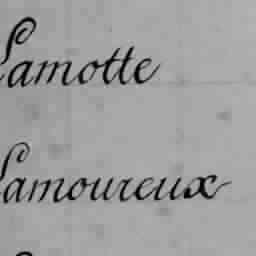 Lamotte
Lamoureux